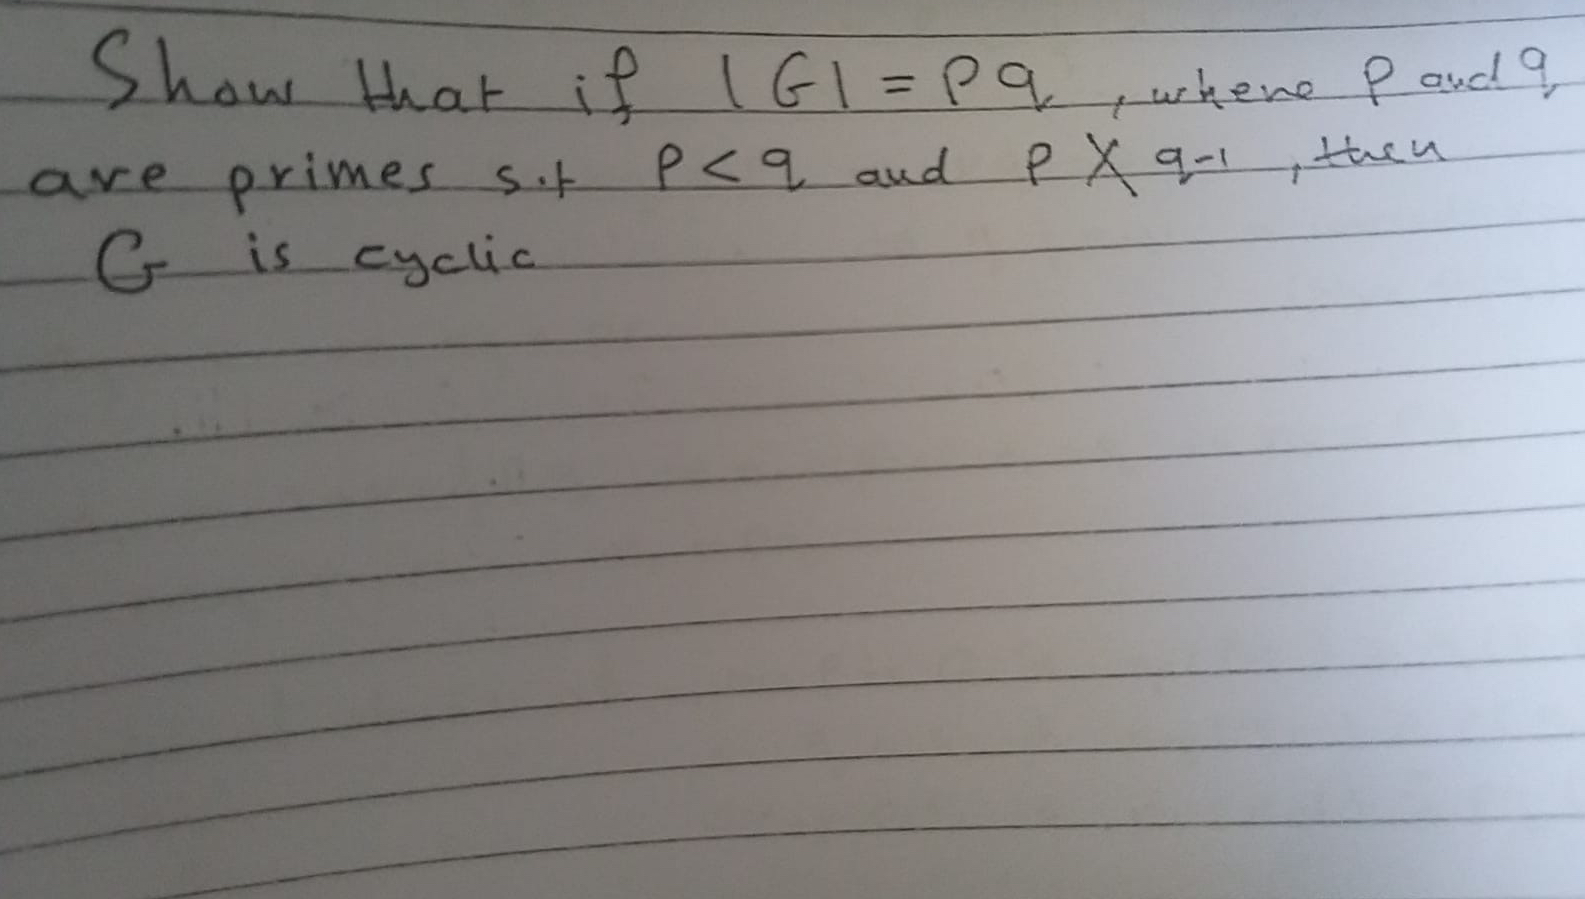 Show that if |G| = pq, where p and q
are primes s.t p < q and p ∤ q-1, then
G is cyclic